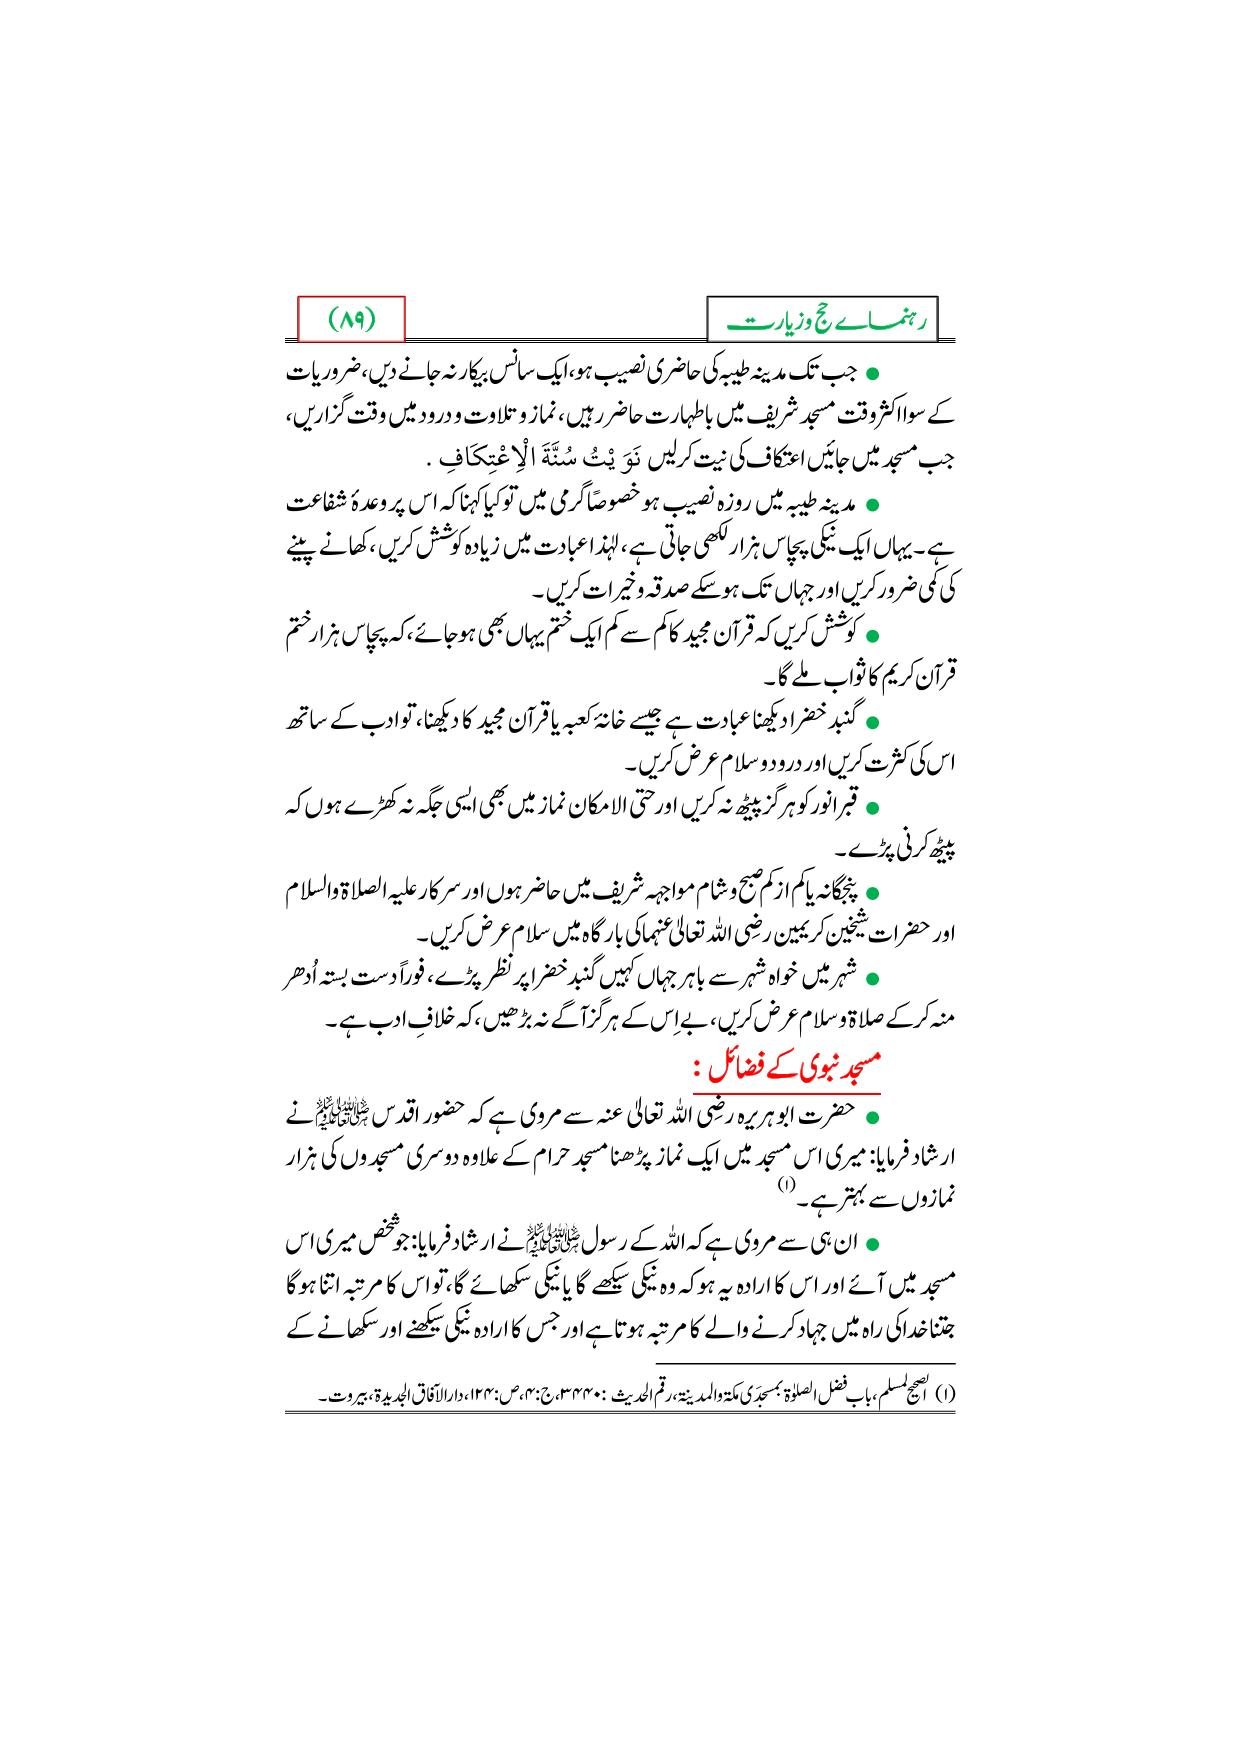 رہنمائے حج و زیارت
(۸۹)
● جب تک مدینہ طیبہ کی حاضری نصیب ہو، ایک سانس بیکار نہ جانے دیں، ضروریات
کے سوا اکثر وقت مسجد شریف میں باطہارت حاضر رہیں، نماز و تلاوت و درود میں وقت گزاریں،
جب مسجد میں جائیں اعتکاف کی نیت کرلیں نَوَ یْتُ سُنَّةَ الْاِعْتِکَافِ .
● مدینہ طیبہ میں روزہ نصیب ہو خصوصاً گرمی میں تو کیا کہنا کہ اس پر وعدۂ شفاعت
ہے۔ یہاں ایک نیکی پچاس ہزار لکھی جاتی ہے، لہٰذا عبادت میں زیادہ کوشش کریں، کھانے پینے
کی کمی ضرور کریں اور جہاں تک ہو سکے صدقہ و خیرات کریں۔
● کوشش کریں کہ قرآن مجید کا کم سے کم ایک ختم یہاں بھی ہو جائے، کہ پچاس ہزار ختم
قرآن کریم کا ثواب ملے گا۔
● گنبد خضرا دیکھنا عبادت ہے جیسے خانۂ کعبہ یا قرآن مجید کا دیکھنا، تو ادب کے ساتھ
اس کی کثرت کریں اور درود و سلام عرض کریں۔
● قبر انور کو ہرگز پیٹھ نہ کریں اور حتی الامکان نماز میں بھی ایسی جگہ نہ کھڑے ہوں کہ
پیٹھ کرنی پڑے۔
● پنجگانہ یا کم از کم صبح و شام مواجہہ شریف میں حاضر ہوں اور سرکار علیہ الصلاۃ والسلام
اور حضرات شیخین کریمین رضِی اللہ تعالیٰ عنہما کی بارگاہ میں سلام عرض کریں۔
● شہر میں خواہ شہر سے باہر جہاں کہیں گنبد خضرا پر نظر پڑے، فوراً دست بستہ اُدھر
منہ کر کے صلاۃ و سلام عرض کریں، بے اِس کے ہرگز آگے نہ بڑھیں، کہ خلافِ ادب ہے۔
مسجد نبوی کے فضائل :
● حضرت ابو ہریرہ رضِی اللہ تعالیٰ عنہ سے مروی ہے کہ حضور اقدس ﷺ نے
ارشاد فرمایا: میری اس مسجد میں ایک نماز پڑھنا مسجد حرام کے علاوہ دوسری مسجدوں کی ہزار
نمازوں سے بہتر ہے۔(۱)
● ان ہی سے مروی ہے کہ اللہ کے رسول ﷺ نے ارشاد فرمایا: جو شخص میری اس
مسجد میں آئے اور اس کا ارادہ یہ ہو کہ وہ نیکی سیکھے گا یا نیکی سکھائے گا، تو اس کا مرتبہ اتنا ہو گا
جتنا خدا کی راہ میں جہاد کرنے والے کا مرتبہ ہوتا ہے اور جس کا ارادہ نیکی سیکھنے اور سکھانے کے
(۱) الصحیح لمسلم، باب فضل الصلوٰۃ بمسجدَی مکۃ والمدینۃ، رقم الحدیث :۳۴۴۰، ج:۴، ص:۱۲۴، دار الآفاق الجدیدۃ، بیروت۔